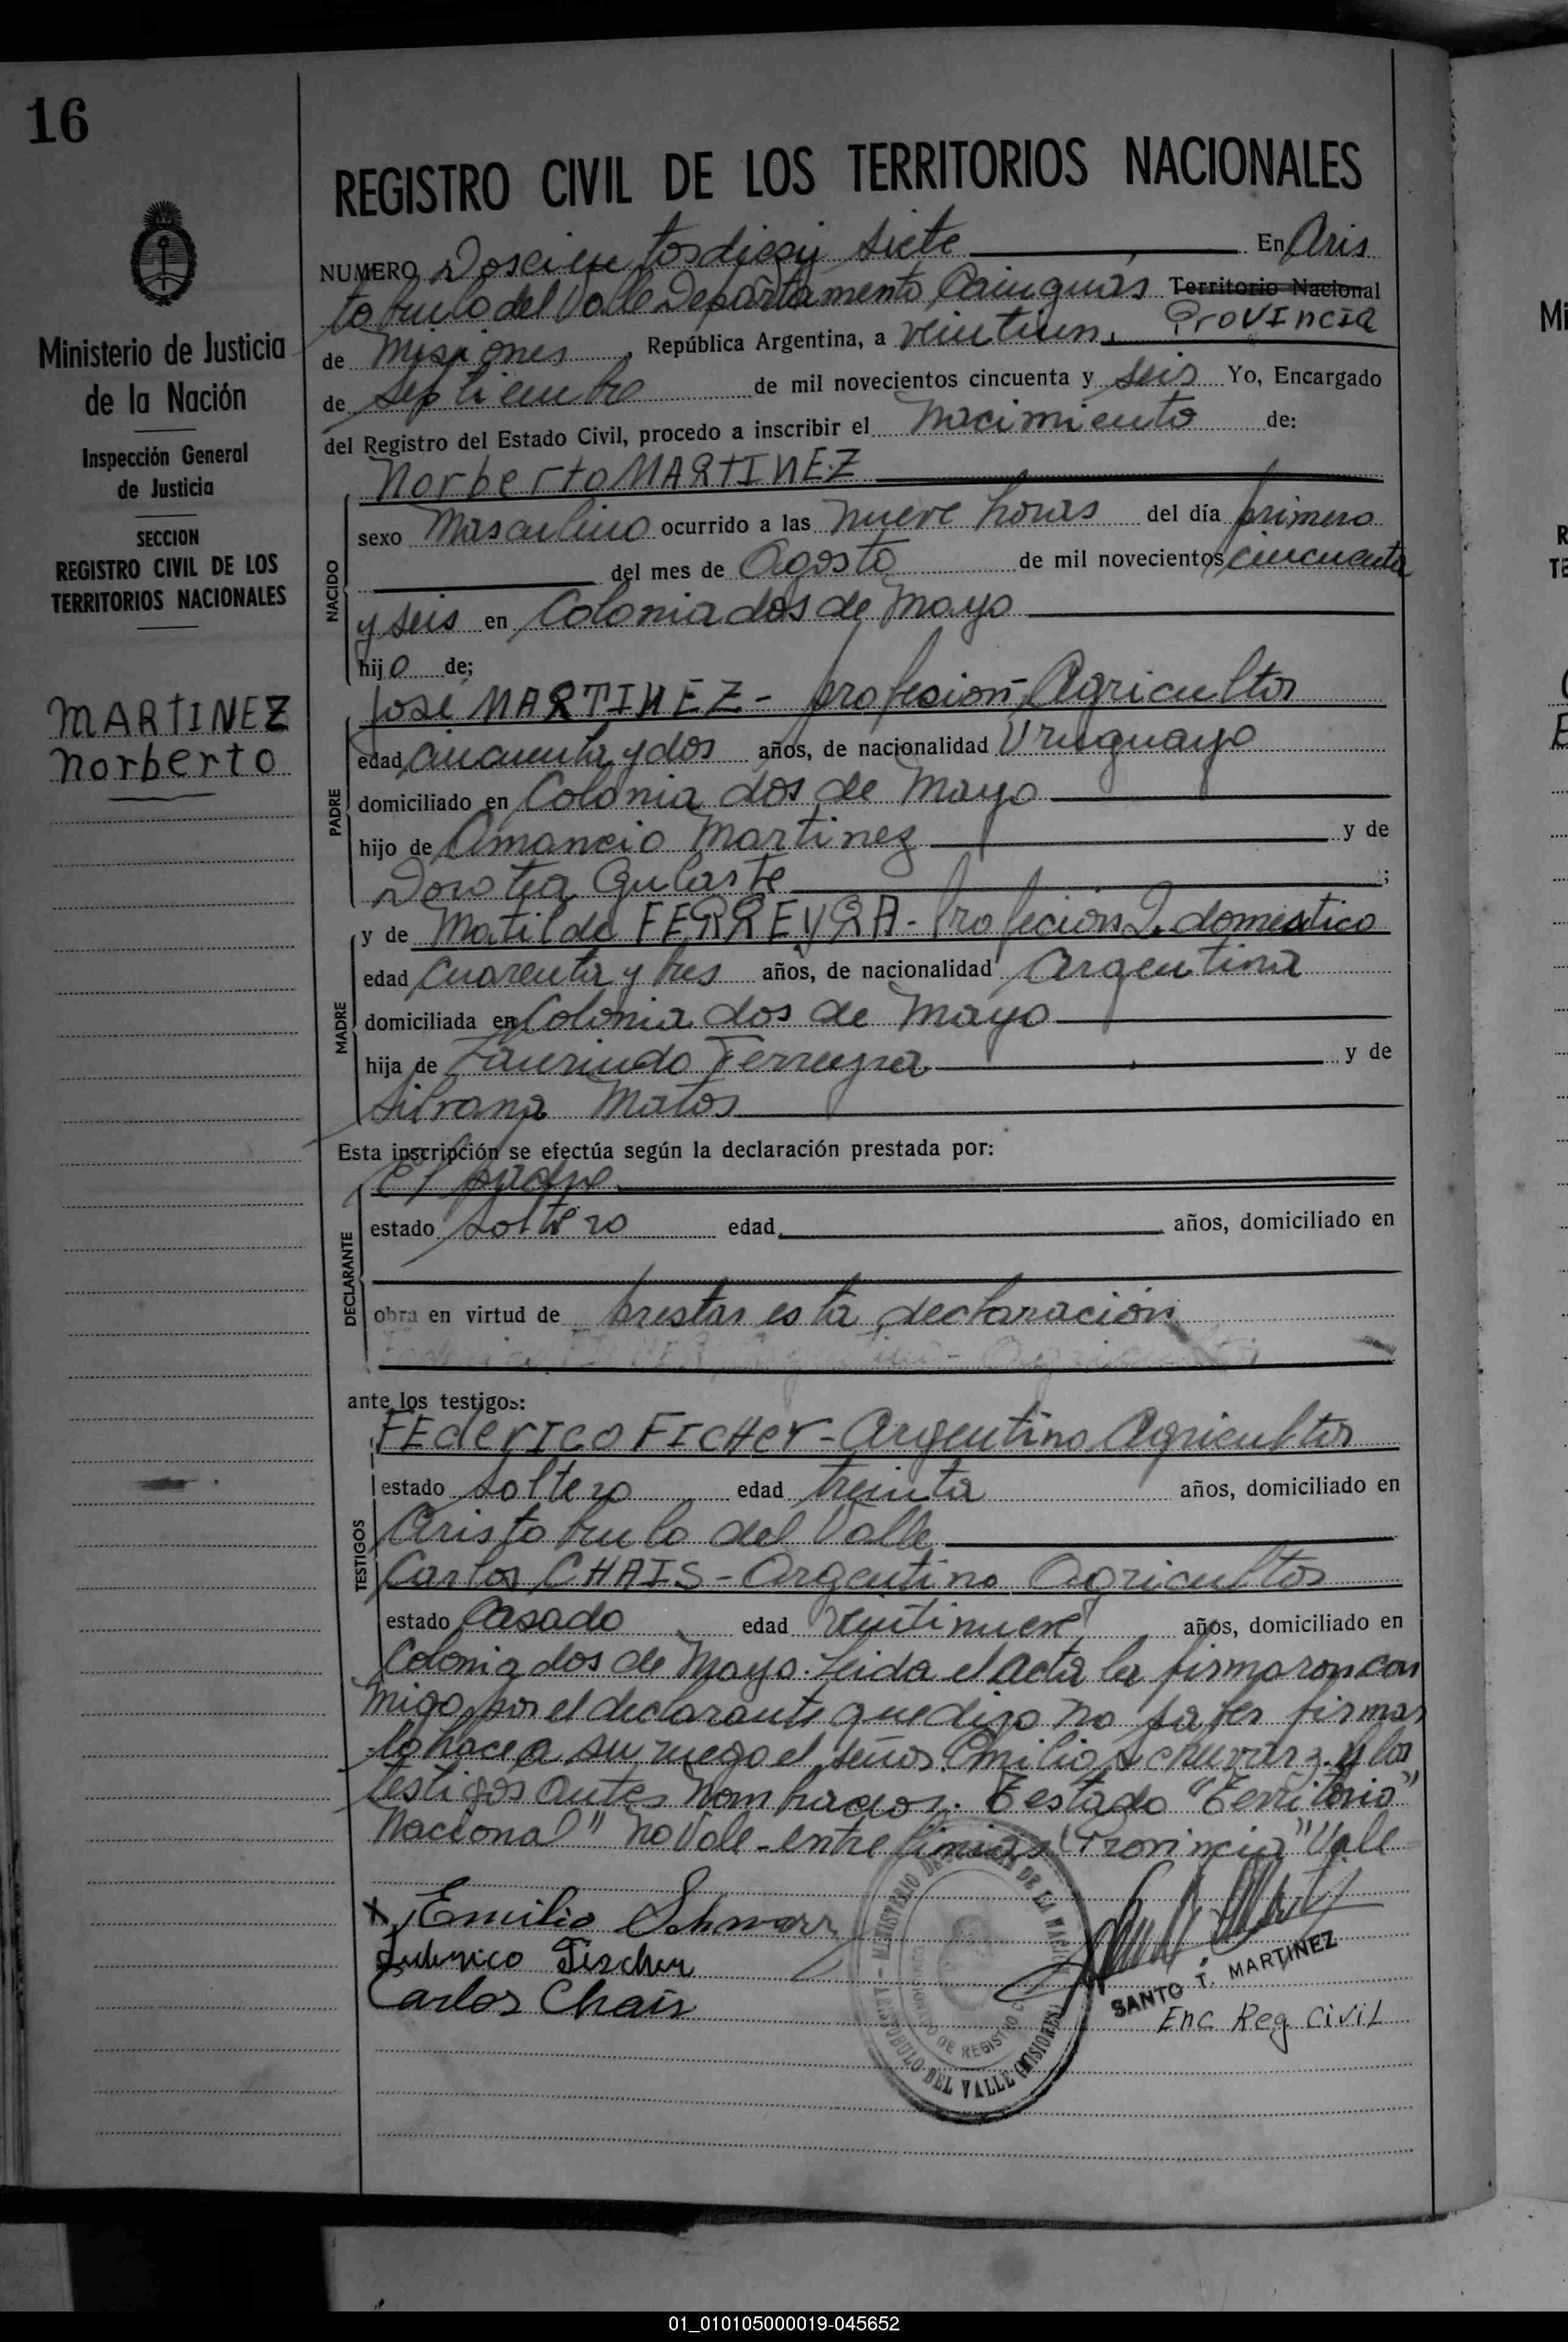 16
Ministerio de Justicia
de la Nación
Inspección General
de Justicia
SECCION
REGISTRO CIVIL DE LOS
TERRITORIOS NACIONALES
MARTINEZ
Norberto
REGISTRO CIVIL DE LOS TERRITORIOS NACIONALES
NUMERO Doscientosdiesiy siete En Aris
tobulo del Valle Departamento Cainguás Territorio Nacional
Provincia
de Misiones, República Argentina, a veintiun
de Septiembre de mil novecientos cincuenta y seis Yo, Encargado
del Registro del Estado Civil, procedo a inscribir el Nacimiento de:
Norberto MARTINEZ
NACIDO
sexo Masculino ocurrido a las nueve horas del día primero
del mes de Agosto de mil novecientos cincuenta
y seis en Colonia dos de Mayo
hijo de;
José MARTINEZ - profesion - Agricultor
PADRE
edad cincuenta y dos años, de nacionalidad Uruguayo
domiciliado en Colonia dos de Mayo
hijo de Amancio Martinez y de
Dorotea Gularte ;
y de Matilde FERREYRA - Profecion Q. domestico
MADRE
edad cuarenta y tres años, de nacionalidad Argentina
domiciliada en Colonia dos de Mayo
hija de Laurindo Ferreyra y de
Silvana Matos
Esta inscripción se efectúa según la declaración prestada por:
El padre
DECLARANTE
estado soltero edad años, domiciliado en
obra en virtud de prestar esta declaración
ante los testigos:
FEderICO FICHer - Argentino Agricultor
TESTIGOS
estado soltero edad treinta años, domiciliado en
Aristobulo del Valle
Carlos CHAIS - Argentino Agricultor
estado Casado edad veintinueve años, domiciliado en
Colonia dos de Mayo. Leida el acta la firmaron con
migo, por el declarante que dijo no saber firmar
lo hace a su ruego el señor Emilio Schwarz. y los
testigos antes nombrados. Testado "Territorio
Nacional" no Vale - entre lineas "Provincia" Vale
x Emilio Schwarz
Federico Fischer
Carlos Chais
MINISTERIO DE JUSTICIA DE LA NACION
ARISTOBULO DEL VALLE (MISIONES)
SANTO T. MARTINEZ
Enc Reg Civil
01_010105000019-045652